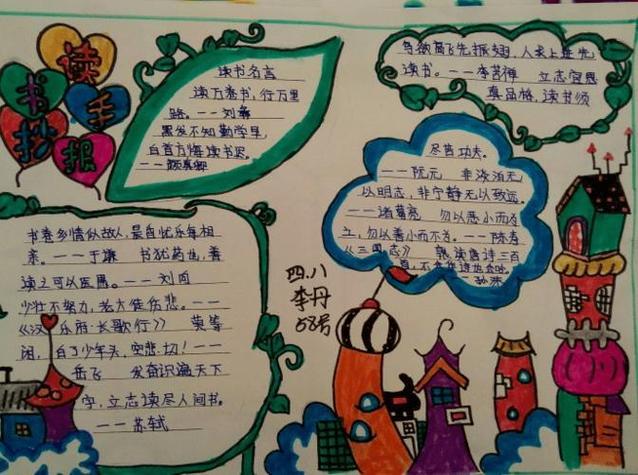 读
书手
抄报
读书名言
读万卷书,行万里
路。——刘彝
黑发不知勤学早,
白首方悔读书迟。
——颜真卿
鸟欲高飞先振翅,人求上进先
读书。——李苦禅 立志宜思
真品格,读书须
尽苦功夫。
——阮元 非淡泊无
以明志,非宁静无以致远。
——诸葛亮 勿以恶小而为
之,勿以善小而不为。——陈寿
《三国志》 熟读唐诗三百
——孙洙
书卷多情似故人,晨昏忧乐每相
亲。——于谦 书犹药也,善
读之可以医愚。——刘向
少壮不努力,老大徒伤悲。——
《汉乐府·长歌行》 莫等
闲,白了少年头,空悲切!——
岳飞 发奋识遍天下
字,立志读尽人间书。
——苏轼
四.八
李丹
58号